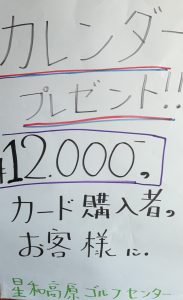 カレンダー
プレゼント!!
¥12.000-の
カード購入者の
お客様に.
星和高原ゴルフセンター